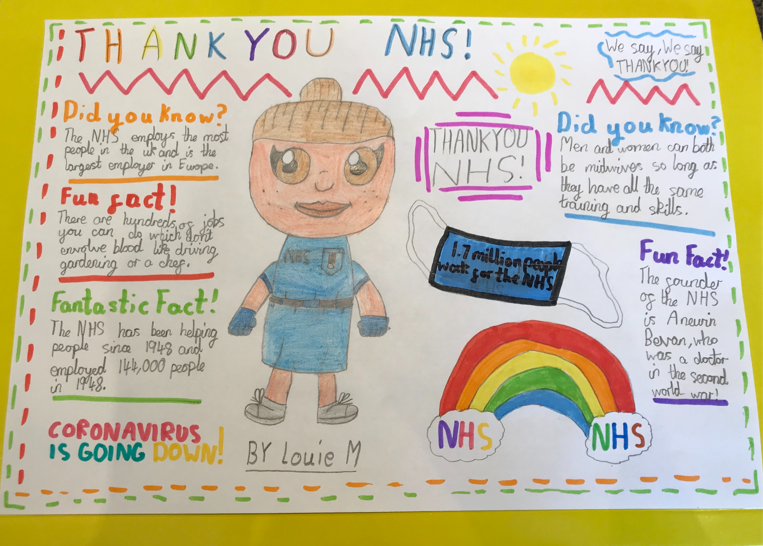 THANK YOU NHS!
We say, We say
THANKYOU!
Did you know?
The NHS employs the most
people in the uk and is the
largest employer in Europe.
Fun fact!
There are hundreds of jobs
you can do which don't
envolve blood like driving
gardening or a chef.
Fantastic Fact!
The NHS has been helping
people since 1948 and
employed 144,000 people
in 1948.
CORONAVIRUS
IS GOING DOWN!
NHS
BY Louie M
THANKYOU
NHS!
1.7 million people
work for the NHS
NHS
NHS
Did you know?
Men and women can both
be midwives so long as
they have all the same
training and skills.
Fun Fact!
The founder
of the NHS
is Aneurin
Bevan, who
was a doctor
in the second
world war!